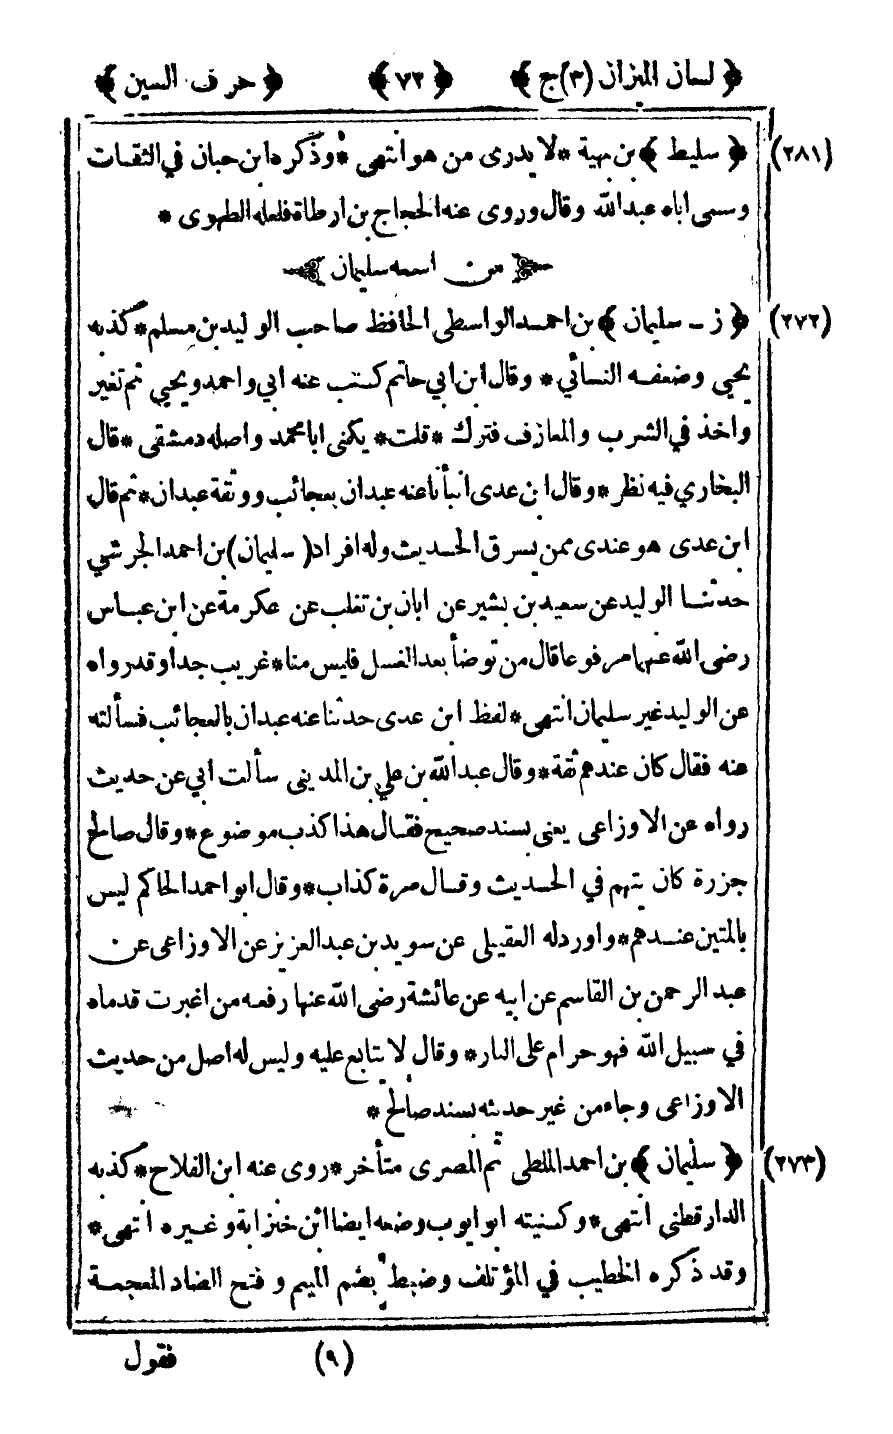 ﴿ لسان الميزان (٣) ج ﴾ ﴿ ٧٢ ﴾ ﴿ حرف السين ﴾
(٢٨١) ﴿ سليط ﴾ بن بهية * لا يدرى من هو انتهى * وذكره ابن حبان في الثقات
وسمى اباه عبد الله وقال وروى عنه الحجاج بن ارطاة فلعله الطهوى *
من اسمه سليمان
(٢٧٢) ﴿ ز - سليمان ﴾ بن احمد الواسطى الحافظ صاحب الوليد بن مسلم * كذبه
يحيى وضعفه النسائي * وقال ابن ابي حاتم كتب عنه ابي واحمد ويحيى ثم تغير
واخذ في الشرب والمعازف فترك * قلت * يكنى ابا محمد واصله دمشقى * قال
البخاري فيه نظر * وقال ابن عدى انبأنا عنه عبدان بعجائب ووثقة عبدان * ثم قال
ابن عدى هو عندى ممن يسرق الحديث وله افراد (سليمان) بن احمد الجرشي
حدثنا الوليد عن سعيد بن بشير عن ابان بن تغلب عن عكرمة عن ابن عباس
رضى الله عنهما مرفوعا قال من توضأ بعد الغسل فليس منا * غريب جدا وقد رواه
عن الوليد غير سليمان انتهى * لفظ ابن عدى حدثنا عنه عبدان بالعجائب فسألته
عنه فقال كان عندهم ثقة * وقال عبد الله بن علي بن المدينى سألت ابي عن حديث
رواه عن الاوزاعى يعنى بسند صحيح فقال هذا كذب موضوع * وقال صالح
جزرة كان يتهم في الحديث وقال مرة كذاب * وقال ابو احمد الحاكم ليس
بالمتين عندهم * واورد له العقيلى عن سويد بن عبد العزيز عن الاوزاعى عن
عبد الرحمن بن القاسم عن ابيه عن عائشة رضى الله عنها رفعه من اغبرت قدماه
في سبيل الله فهو حرام على النار * وقال لا يتابع عليه وليس له اصل من حديث
الاوزاعى وجاء من غير حديثه بسند صالح *
(٢٧٣) ﴿ سليمان ﴾ بن احمد الملطى ثم المصرى متأخر * روى عنه ابن الفلاح * كذبه
الدارقطنى انتهى * وكنيته ابو ايوب وضعه ايضا ابن خنزابة وغيره انتهى *
وقد ذكره الخطيب في المؤتلف وضبط بضم الميم وفتح الضاد المعجمة
(٩) فقول